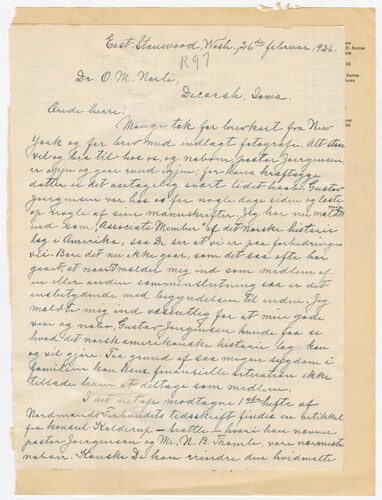 East Stanwood, Wash., 26de februar, 1926.
R97
Dr. O. M. Norlie,
Decorah, Iowa.
Gode herre!
Mange tak for brevkort fra New
York og for brev med indlagt fotografi. Alt staar
vel og bra til hos os, og naboen, pastor Joergensen
er oppe og gaar rundt igjen, for hans kræftsyge
datter er det antagelig snart tidet hare. Gustav
Joergensen var hos os for nogle dage siden og læste
op nogle af sine manuskripter. Jeg har nu meldt mig
ind som "Associate Member" af det Norske historie
lag i Amerika, saa De ser at vi er paa forbedringens
vei. Bare det nu ikke gaar, som det saa ofte har
gaat, at naar jeg melder mig ind som medlem af
en eller anden sammenslutning saa er det
ensbetydende med begyndelsen til enden. Jeg
meldte mig ind væsentlig for at min gode
ven og nabo, Gustav Joergensen kunde faa se
hvad det norskamerikanske historie lag kan
og vil gjøre. Paa grund af saa megen sygdom i
familien kan hans finansielle situation ikke
tillade ham at deltage som medlem.
I det netop modtagne 1ste hefte af
Nordmands-Forbundets tidsskrift findes en artikkel
fra konsul Kolderup – Seattle – hvori han nævner
pastor Joergensen og Mr. N. B. Tromle, vore nærmeste
naboer. Kanske De kan erindre den hvidmalte